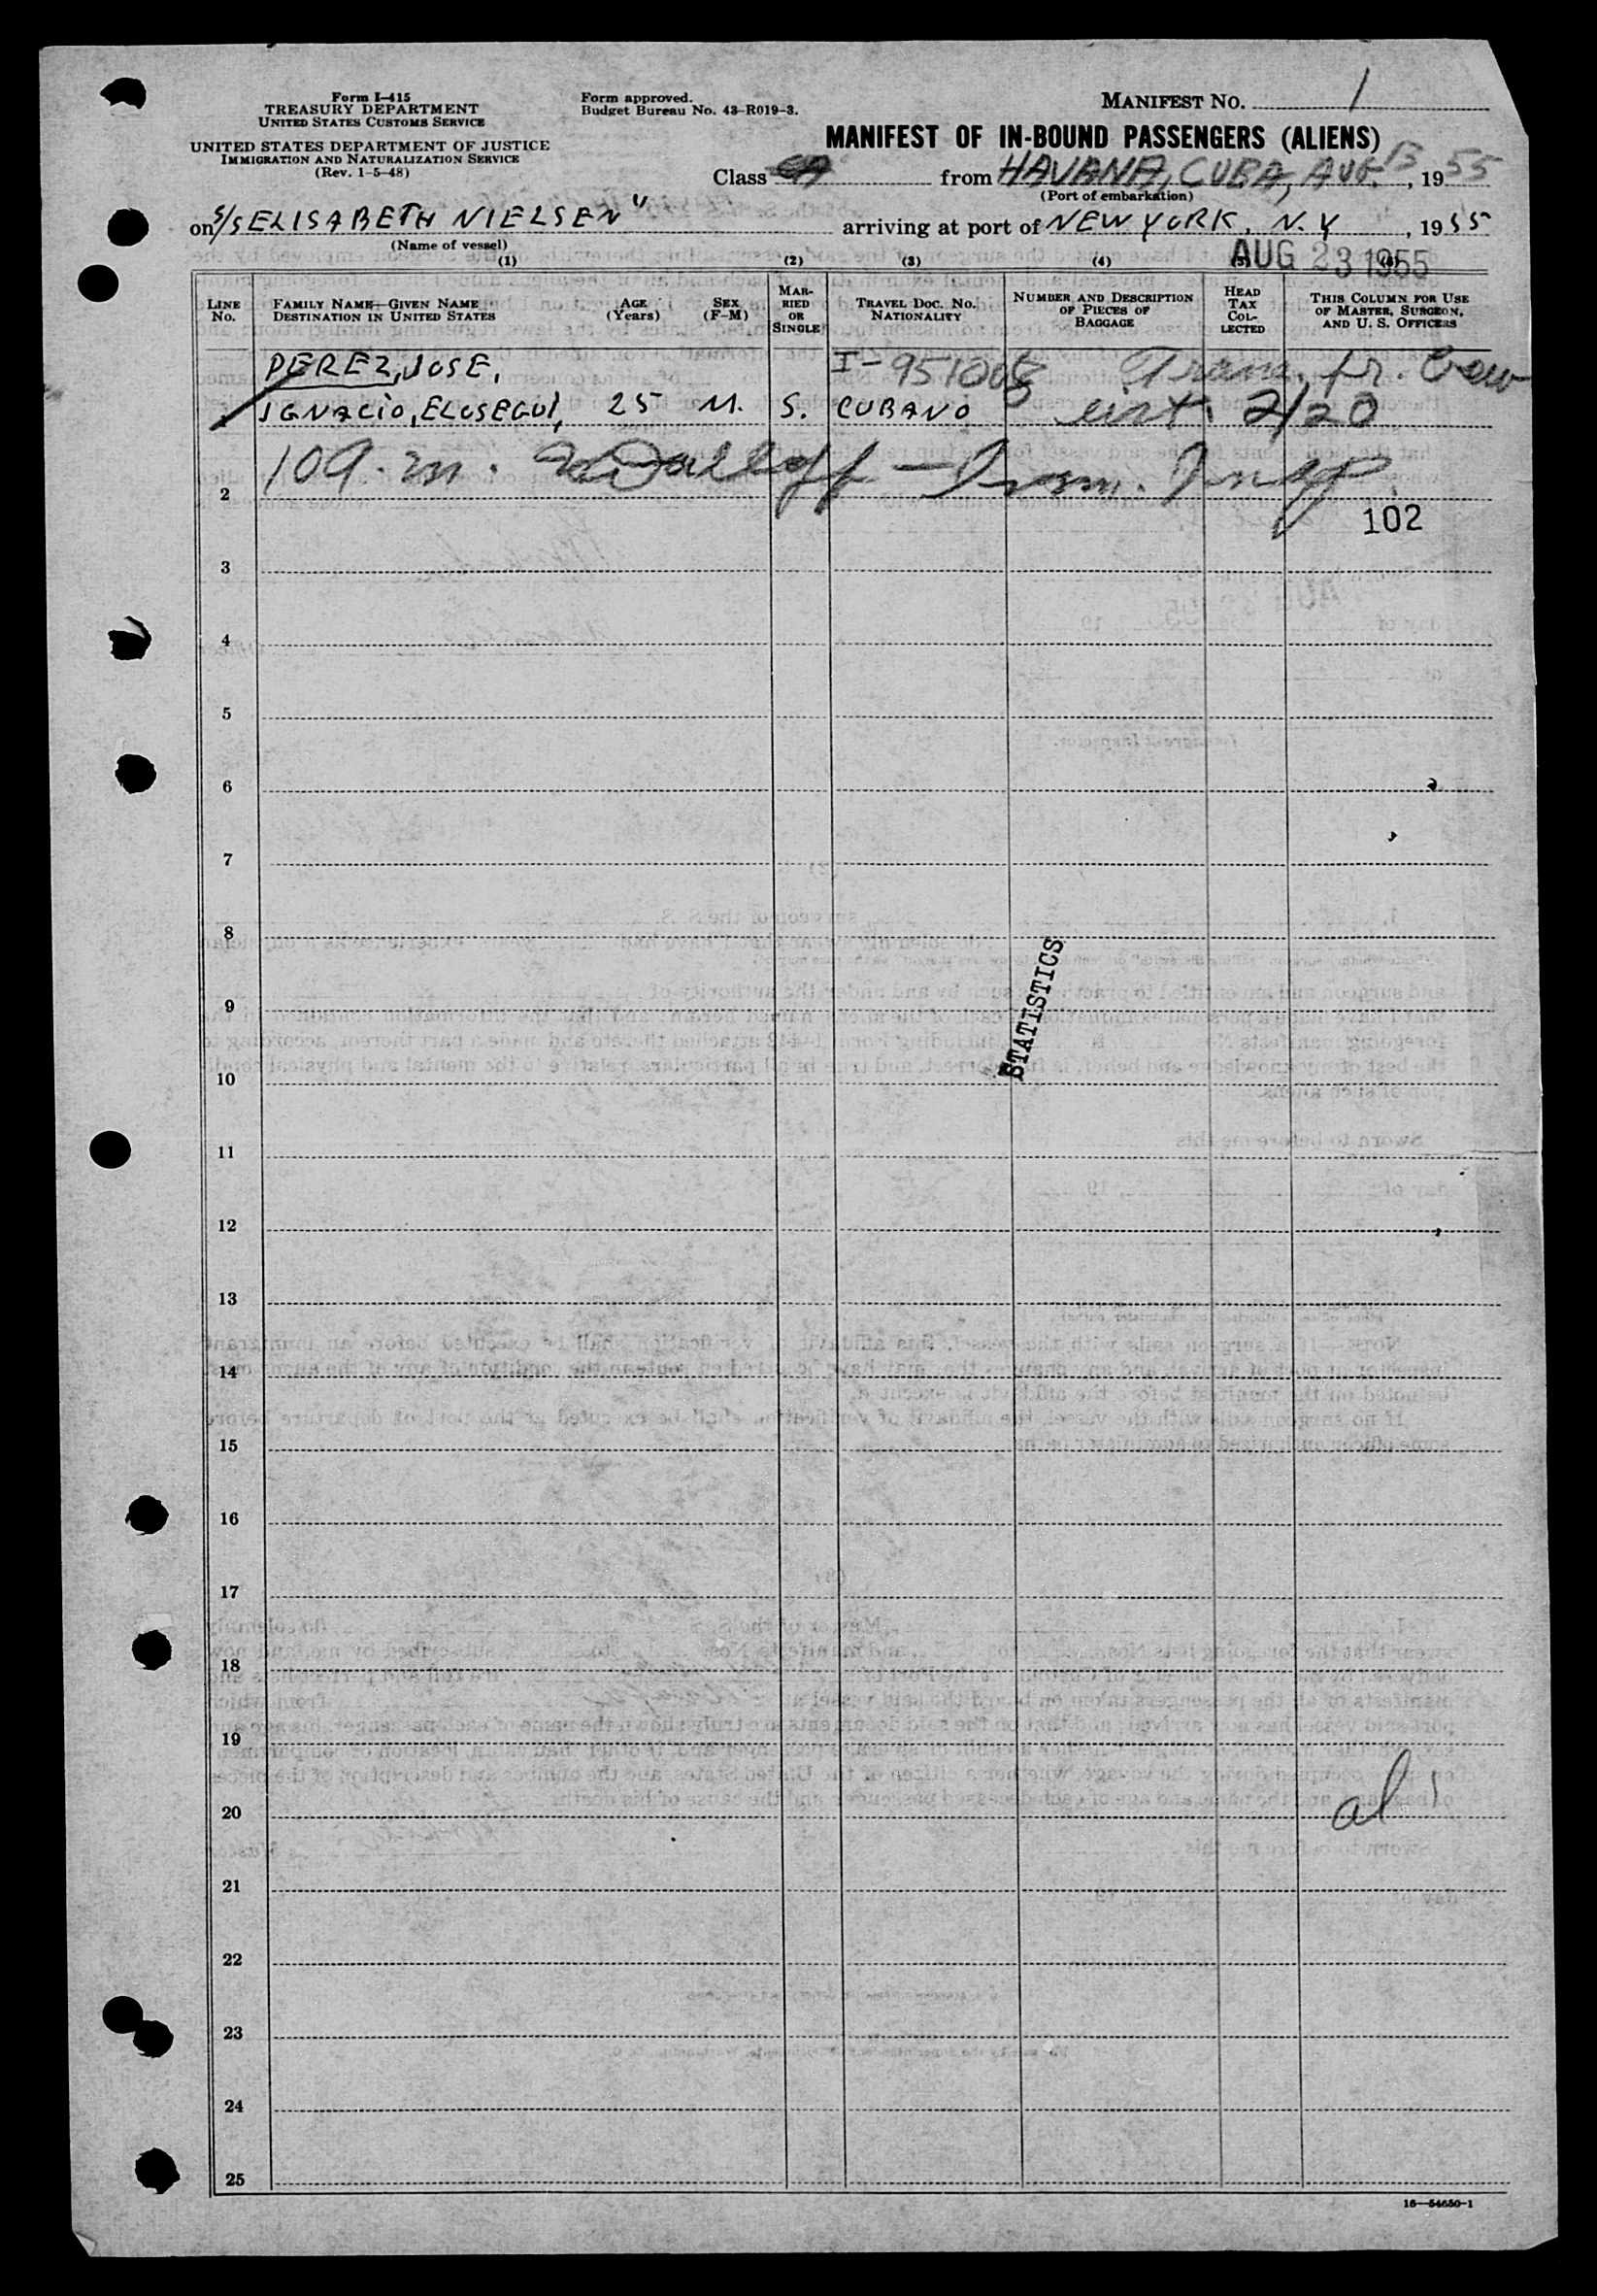 Form I-415
TREASURY DEPARTMENT
UNITED STATES CUSTOMS SERVICE
UNITED STATES DEPARTMENT OF JUSTICE
IMMIGRATION AND NATURALIZATION SERVICE
(Rev. 1-5-48)
Form approved.
Budget Bureau No. 43-R019-3.
MANIFEST NO. 1
MANIFEST OF IN-BOUND PASSENGERS (ALIENS)
Class from HAVANA, CUBA, AUG. 13, 1955
(Port of embarkation)
on S/S ELISABETH NIELSEN" arriving at port of NEW YORK, N.Y, 1955
(Name of vessel)
AUG 23 1955
(1) (2) (3) (4) (5) (6)
LINE No.
FAMILY NAME—GIVEN NAME
DESTINATION IN UNITED STATES
AGE (Years)
SEX (F-M)
MARRIED OR SINGLE
TRAVEL DOC. NO.
NATIONALITY
NUMBER AND DESCRIPTION OF PIECES OF BAGGAGE
HEAD TAX COLLECTED
THIS COLUMN FOR USE OF MASTER, SURGEON, AND U. S. OFFICERS
PEREZ, JOSE, I-951008 Trans. fr. Crew
IGNACIO, ELOSEGUI, 25 M. S. CUBANO list 2/20
109. m. Imm. Insp.
2
102
3
4
5
6
7
8
STATISTICS
9
10
11
12
13
14
15
16
17
18
19
20
al
21
22
23
24
25
16—54650-1